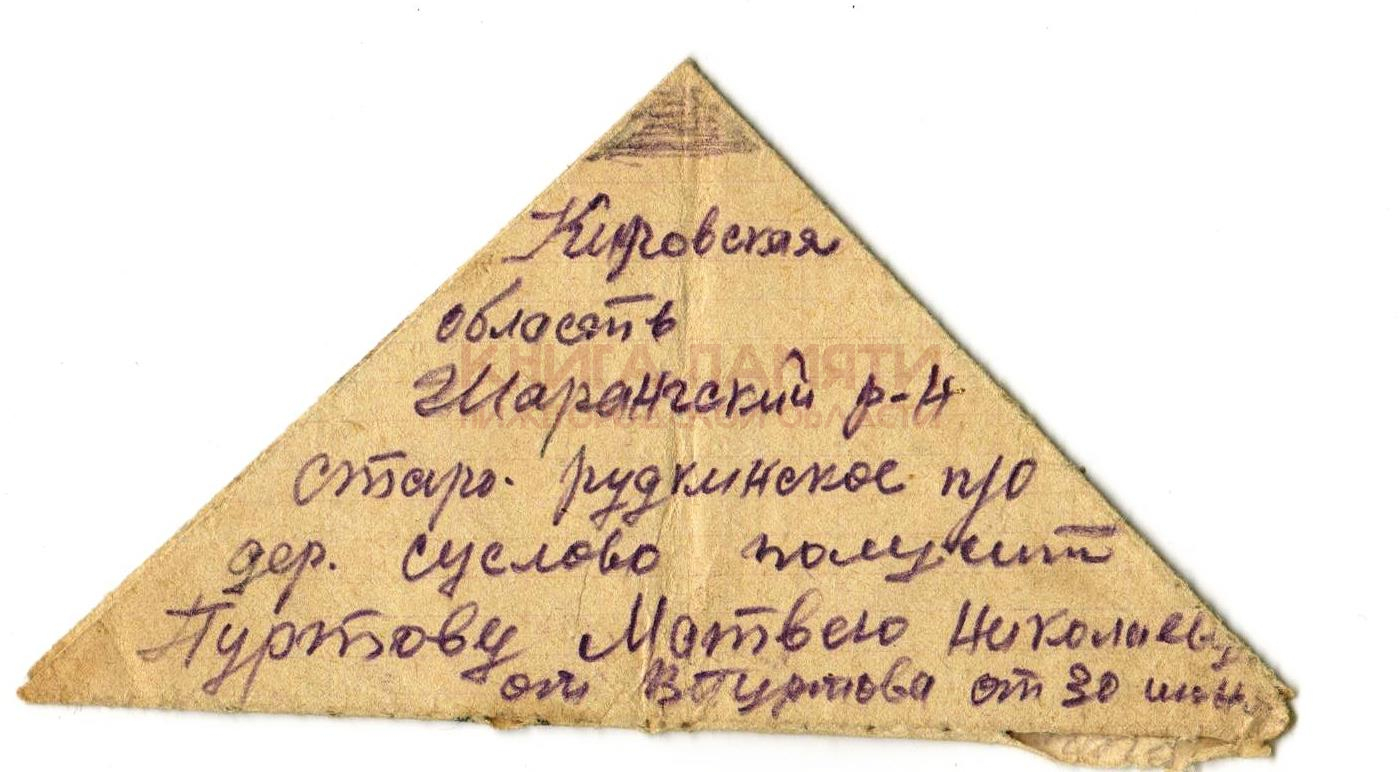 Кировская
область
Шарангский р-н
старо. рудкинское п/о
дер. суслово получит
Пуртову Матвею Николаевичу
от В Пуртова от 30 июня
КНИГА ПАМЯТИ
НИЖЕГОРОДСКОЙ ОБЛАСТИ